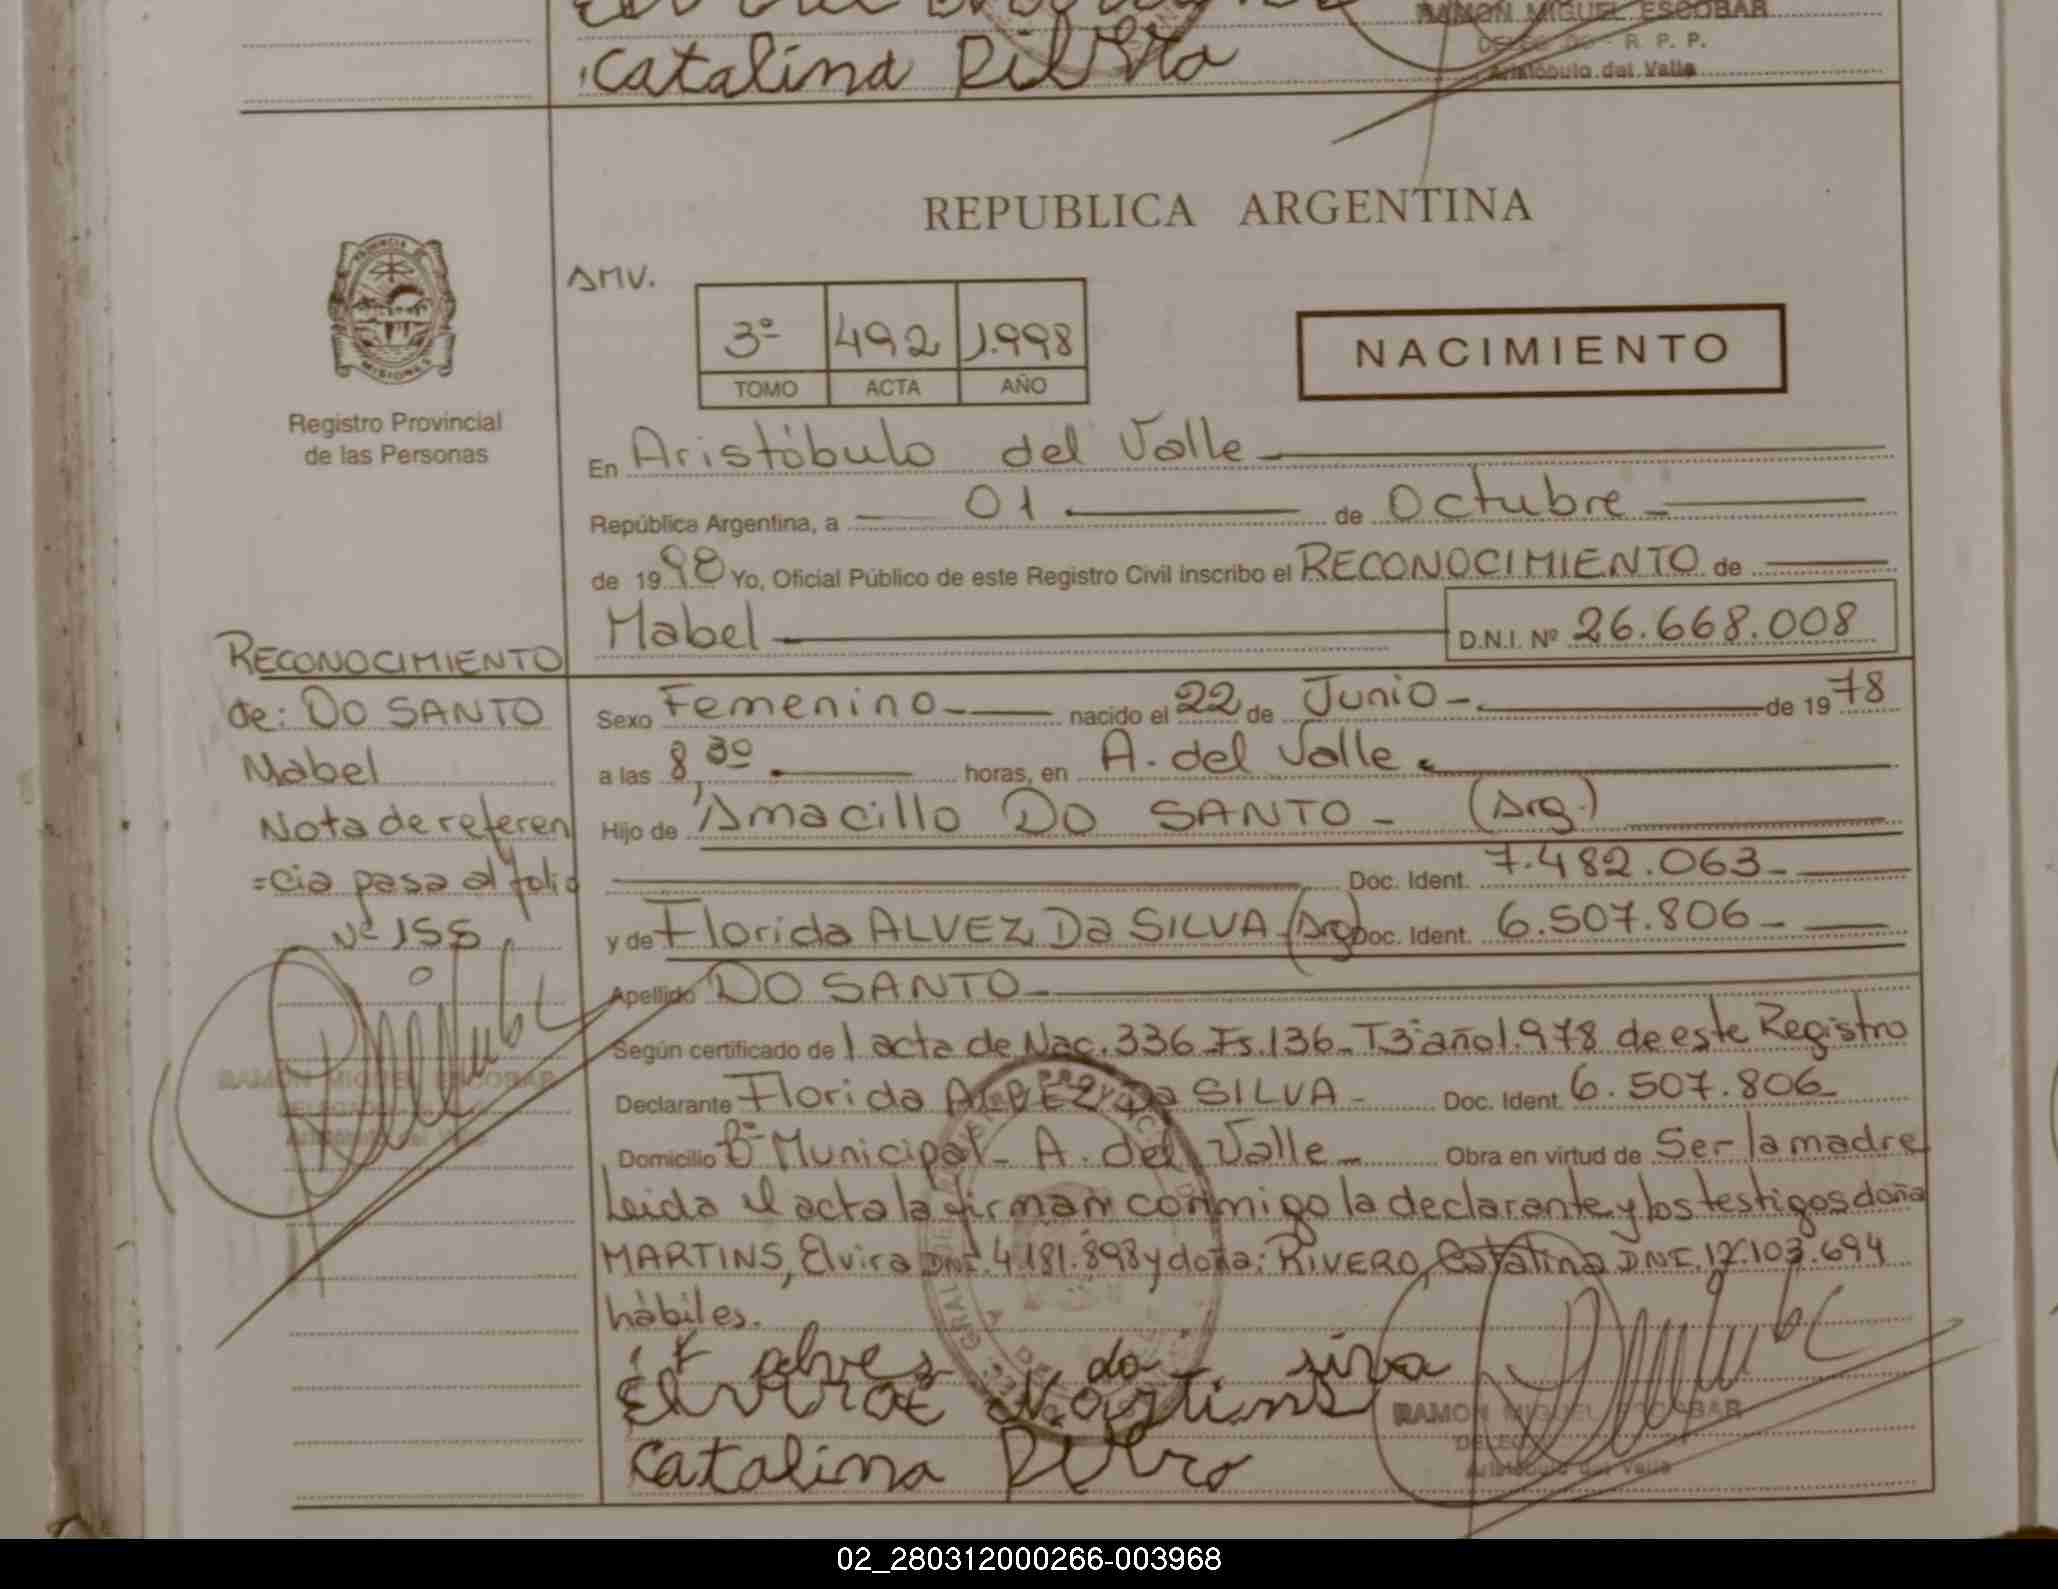 Catalina
RAMON MIGUEL ESCOBAR
R. P. P.
Aristóbulo del Valle
REPUBLICA ARGENTINA
AMV.
3º 492 1.998
TOMO ACTA AÑO
NACIMIENTO
PROVINCIA
MISIONES
Registro Provincial
de las Personas
En Aristóbulo del Valle
República Argentina, a 01 de Octubre
de 1998 Yo, Oficial Público de este Registro Civil inscribo el RECONOCIMIENTO de
Mabel D.N.I. Nº 26.668.008
RECONOCIMIENTO
de: DO SANTO
Mabel
Nota de referen
=cia pasa al folio
Nº 155
RAMON MIGUEL ESCOBAR
Sexo Femenino nacido el 22 de Junio de 1978
a las 8,30 horas, en A. del Valle
Hijo de Amacillo DO SANTO - (Arg.)
Doc. Ident. 7.482.063
y de Florida ALVEZ Da SILVA (Arg) Doc. Ident. 6.507.806
Apellido DO SANTO
Según certificado de 1 acta de Nac. 336 Fs. 136 - T3º año 1.978 de este Registro
Declarante Florida ALVEZ Da SILVA - Doc. Ident. 6.507.806
Domicilio Bº Municipal - A. del Valle - Obra en virtud de Ser la madre
Leida el acta la firman conmigo la declarante y los testigos doña
MARTINS, Elvira DNI. 4.181.898 y doña: RIVERO, Catalina DNI. 12.103.694
hábiles.
F alvez da silva
Elvira Martins
Catalina
RAMON MIGUEL ESCOBAR
Aristóbulo del Valle
02_280312000266-003968